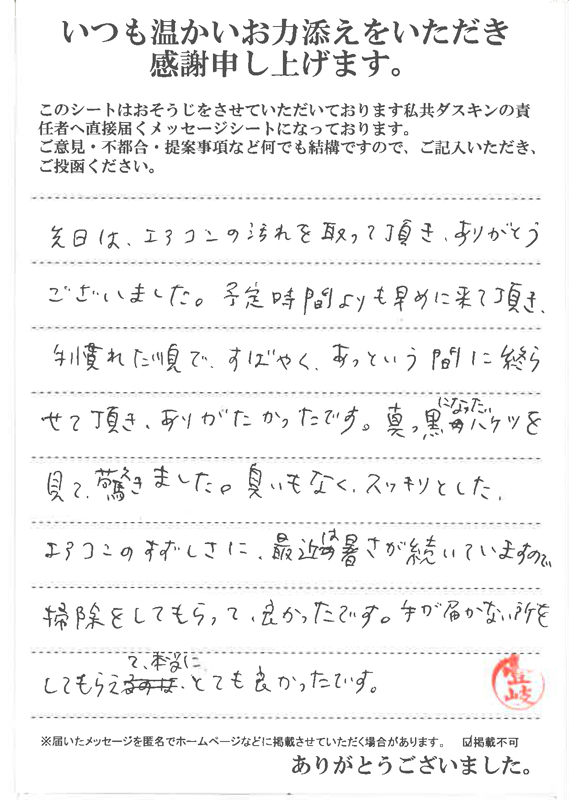 いつも温かいお力添えをいただき
感謝申し上げます。
このシートはおそうじをさせていただいております私共ダスキンの責
任者へ直接届くメッセージシートになっております。
ご意見・不都合・提案事項など何でも結構ですので、ご記入いただき、
ご投函ください。
先日は、エアコンの汚れを取って頂き、ありがとう
ございました。予定時間よりも早めに来て頂き、
手慣れた順で、すばやく、あっという間に終ら
せて頂き、ありがたかったです。真っ黒になったバケツを
見て、驚きました。臭いもなく、スッキリとした、
エアコンのすずしさに、最近は暑さが続いていますので
掃除をしてもらって、良かったです。手が届かない所を
してもらえて、本当に、とても良かったです。
讃岐
※届いたメッセージを匿名でホームページなどに掲載させていただく場合があります。 ☑掲載不可
ありがとうございました。